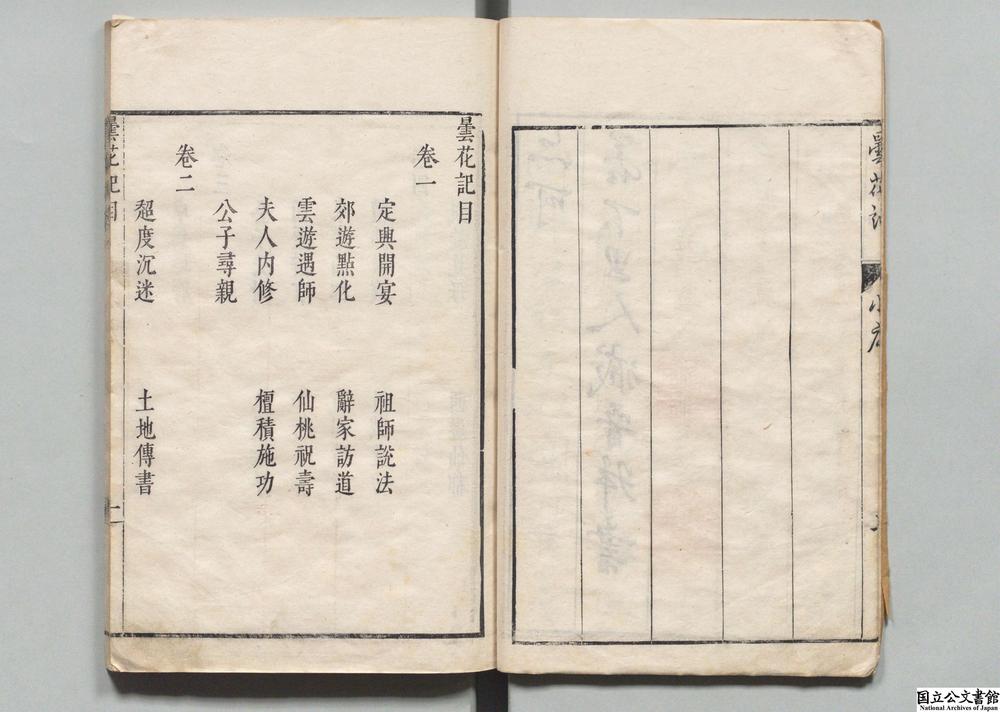 曇花記
小序
曇花記目
卷一
定興開宴 祖師說法
郊遊點化 辭家訪道
雲遊遇師 仙桃祝壽
夫人內修 檀積施功
公子尋親
卷二
超度沉迷 土地傳書
曇花記目
國立公文書館
National Archives of Japan